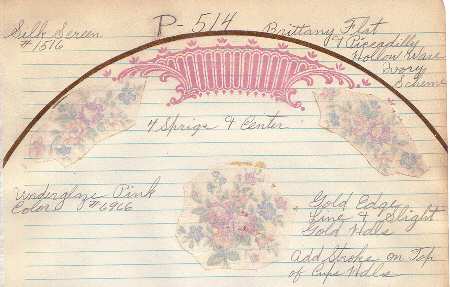 P-514
Silk Screen
#1516
Brittany Flat
& Piccadilly
Hollow Ware
Ivory
Scheme
4 Sprigs & Center
Underglaze Pink
Color #6966
Gold Edge
Line & Slight
Gold Hdls
Add Stroke on Top
of Cups Hdls